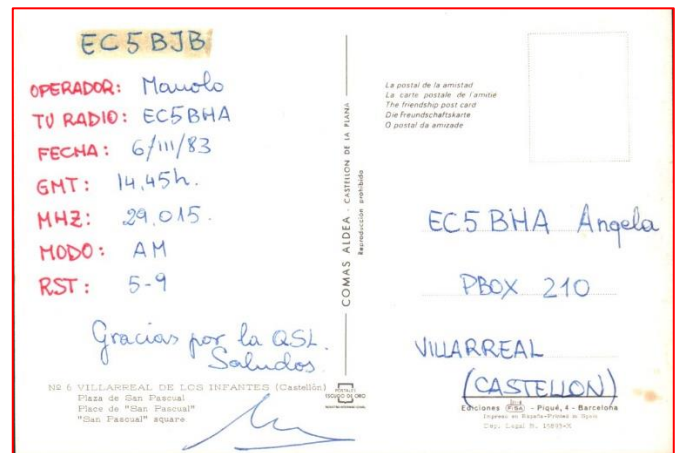 EC5BJB
OPERADOR: Manolo
TU RADIO: EC5BHA
FECHA: 6/III/83
GMT: 14,45h.
MHZ: 29,015.
MODO: AM
RST: 5-9
Gracias por la QSL.
Saludos.
Nº 6 VILLARREAL DE LOS INFANTES (Castellón)
Plaza de San Pascual
Place de "San Pascual"
"San Pascual" square
POSTALES
ESCUDO DE ORO
COMAS ALDEA - CASTELLON DE LA PLANA
Reproducción prohibida
La postal de la amistad
La carte postale de l'amitié
The friendship post card
Die Freundschaftskarte
O postal da amizade
EC5BHA Angela
PBOX 210
VILLARREAL
(CASTELLON)
Ediciones FISA - Piqué, 4 - Barcelona
Impreso en España-Printed in Spain
Dep. Legal B.